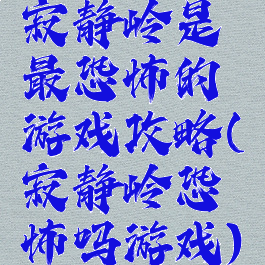 寂静岭是
最恐怖的
游戏攻略(
寂静岭恐
怖吗游戏)